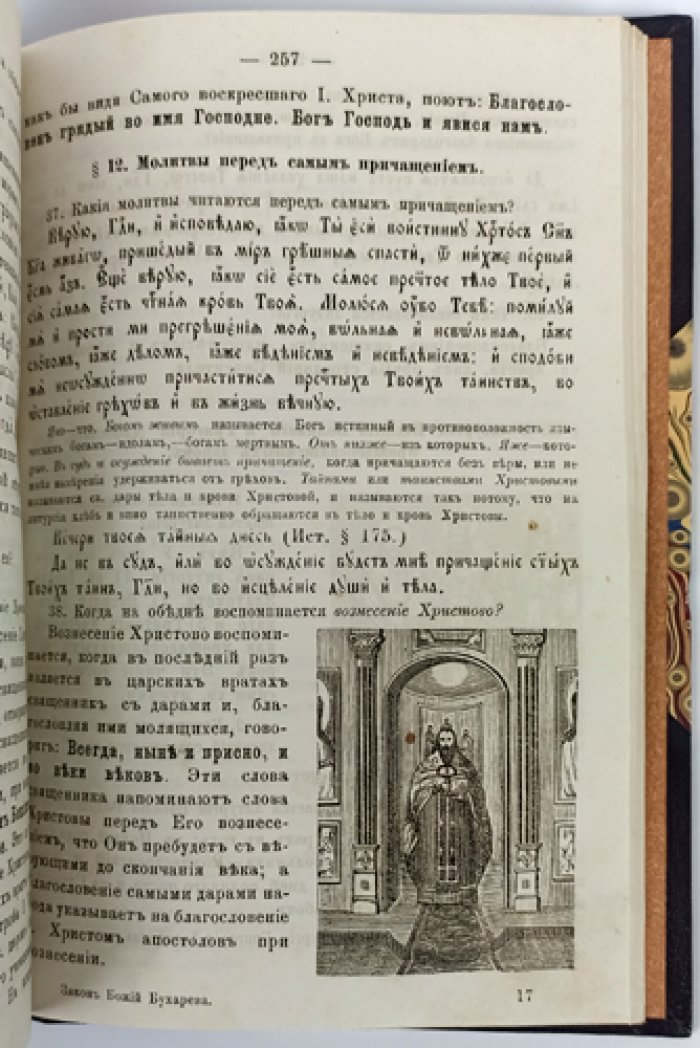 — 257 —
какъ бы видя Самого воскресшаго І. Христа, поютъ: Благосло-
венъ грядый во имя Господне. Богъ Господь и явися намъ.
§ 12. Молитвы передъ самымъ причащеніемъ.
37. Какія молитвы читаются передъ самымъ причащеніемъ?
Вѣрꙋю, Гди, и исповѣдаю, ꙗкѡ Ты єси воистиннꙋ Хртосъ Снъ
Бга живагѡ, пришедый въ міръ грѣшныѧ спасти, ѿ нихже первый
єсмь азъ. Єще вѣрꙋю, ꙗкѡ сіе єсть самое пречтое тѣло Твое, и
сіѧ самаѧ єсть чтнаѧ кровь Твоѧ. Молюсѧ оубо Тебѣ: помилꙋй
мѧ и прости ми прегрѣшеніѧ моѧ, вѡльнаѧ и невѡльнаѧ, ꙗже
словомъ, ꙗже дѣломъ, ꙗже вѣдѣніемъ и невѣдѣніемъ: и сподоби
мѧ неѡсꙋжденнѡ причаститисѧ пречтыхъ Твоихъ таинствъ, во
ѡставленіе грѣхѡвъ и въ жизнь вѣчнꙋю.
Яко—что. Богомъ живымъ называется Богъ истинный въ противоположность язы-
ческимъ богамъ—идоламъ,—богамъ мертвымъ. Отъ нихже—изъ которыхъ. Яже—кото-
рыя. Въ судъ и осужденіе бываетъ причащеніе, когда причащаются безъ вѣры, или не
имѣя намѣренія удерживаться отъ грѣховъ. Тайнами или таинствами Христовыми
называются св. дары тѣла и крови Христовой, и называются такъ потому, что на
литургіи хлѣбъ и вино таинственно обращаются въ тѣло и кровь Христовы.
Вечери твоеѧ тайныѧ днесь (Ист. § 175.)
Да не въ сꙋдъ, или во ѡсꙋжденіе бꙋдетъ мнѣ причащеніе стыхъ
Твоихъ таинъ, Гди, но во исцѣленіе дꙋши и тѣла.
38. Когда на обѣднѣ воспоминается вознесеніе Христово?
Вознесеніе Христово воспоми-
нается, когда въ послѣдній разъ
является въ царскихъ вратахъ
священникъ съ дарами и, бла-
гословляя ими молящихся, гово-
ритъ: Всегда, нынѣ и присно, и
во вѣки вѣковъ. Эти слова
священника напоминаютъ слова
Христовы передъ Его вознесе-
ніемъ, что Онъ пребудетъ съ вѣ-
рующими до скончанія вѣка; а
благословеніе самыми дарами на-
рода указываетъ на благословеніе
І. Христомъ апостоловъ при
вознесеніи.
Законъ Божій Бухарева.
17